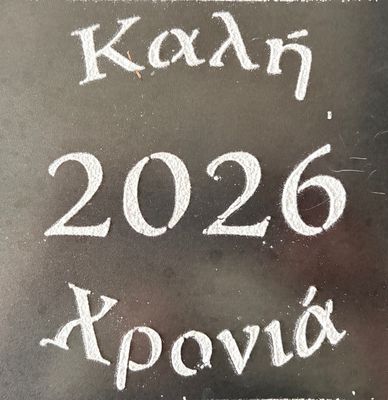 Καλή
2026
Χρονιά